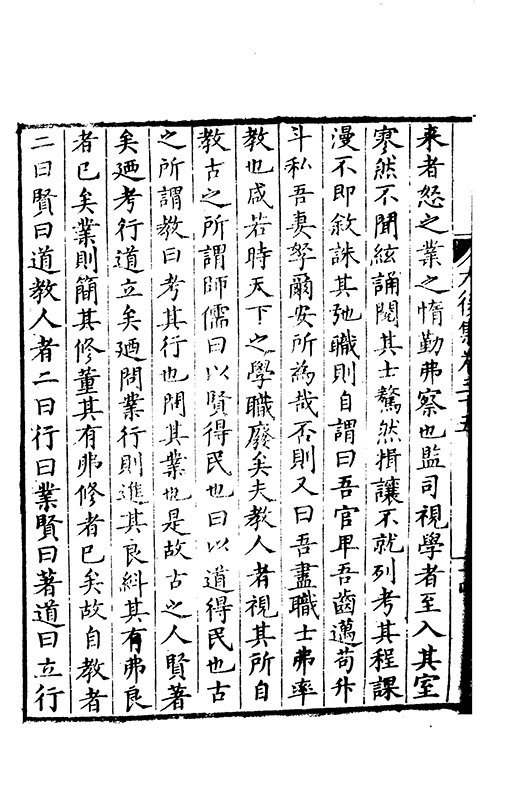 来者恕之業之惰勤弗察也監司視學者至入其室
寥然不聞絃誦閱其士驁然揖讓不就列考其程課
漫不即敘誅其弛職則自謂曰吾官卑吾齒邁苟升
斗私吾妻孥爾安所為哉否則又曰吾盡職士弗率
教也咸若時天下之學職廢矣夫教人者視其所自
教古之所謂師儒曰以賢得民也曰以道得民也古
之所謂教曰考其行也問其業也是故古之人賢著
矣廼考行道立矣廼問業行則進其良糾其有弗良
者已矣業則簡其修董其有弗修者已矣故自教者
二曰賢曰道教人者二曰行曰業賢曰著道曰立行